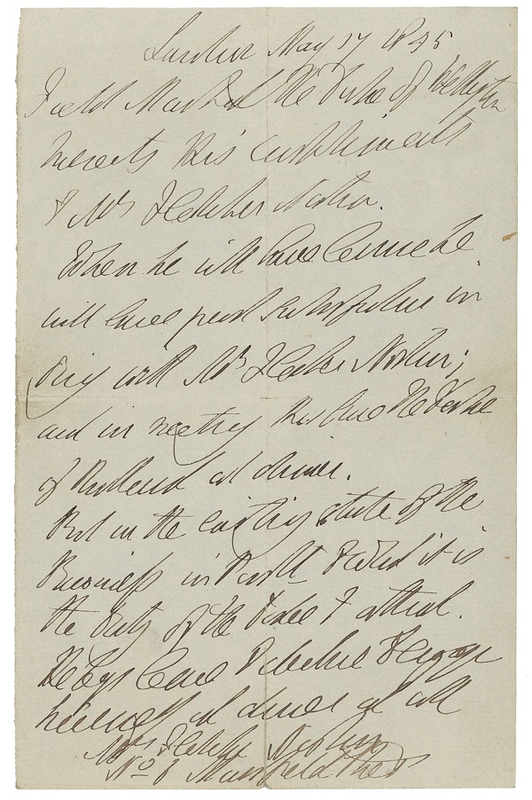 London May 17 1845
Field Marshal the Duke of Wellington
presents his compliments
to Mrs Fletcher Norton.
When he will have he
will have great satisfaction in
with Mrs Fletcher Norton;
and in meeting the Duke
of Rutland at dinner.
But in the existing state of the
Business in it is
the duty of the Duke to attend.
He begs leave to decline to engage
himself at dinner at all
Mrs Fletcher Norton
No 8 Mansfield Street